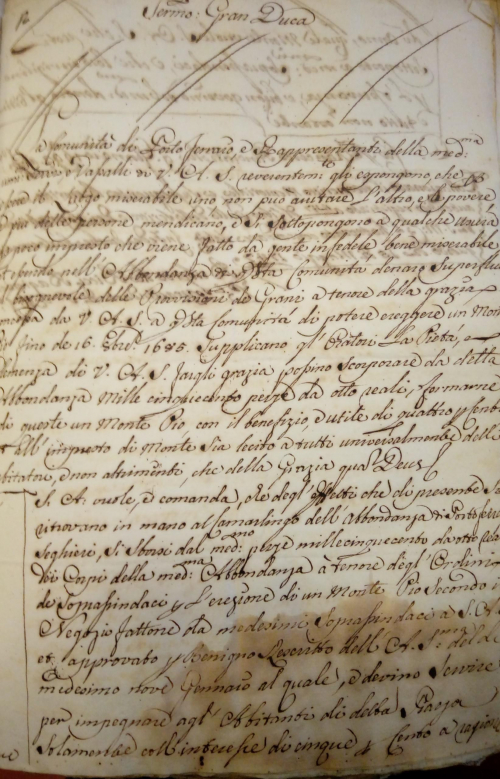 Sermo: Gran Duca
a Comunità di Porto Ferraio, e Rappresentanti della med:ma
e Vassalle di V. A. S. reverentemte gli espongono, che
luogo miserabile uno non può aiutare l'altro, e le povere
più delle persone mendicano, e si sottopongono a qualche usura
poco impresto che viene fatto da gente infedele bene miserabile
nell' Abbondanza di Comunità denaro superfluo
bisognevole delle Provvisione de Grani a tenore della grazia
da V. A. S. a Comunità di potere ereggere un Mon
fino de 16 1685. Supplicano gl' Oratori La Pietà, e
di V. A. S. fargli grazia possino scorporare da detta
Abbondanza Mille cinquecento pezze da otto reali, e formarne
di queste un Monte Pio con il benefizio, e utile di quattro p Cento
ll' impresto di Monte sia lecito a tutti universalmente delli
bitatori, e non altrimenti, che della Grazia qual Deus
S. A. vuole, e comanda, che degl' effetti che di presente si
ritrovano in mano al Camarlingo dell' Abbondanza di Portoferr
Seghieri, si sborsi dal med:mo pezze millecinquecento da otto reali
di Capi della med:ma Abbondanza a tenore degl' Ordini
de Soprasindaci p l'erezione di un Monte Pio secondo il
Negozio fattone da medesimi Soprasindaci a S. A.
et approvato p Benigno Rescritto dell' A. S.ma del dì
medesimo nove Gennaro al quale, e devino servire
per impegnare agl' Abitanti di detta Piazza
solamente coll' interesse di cinque p Cento a ragione